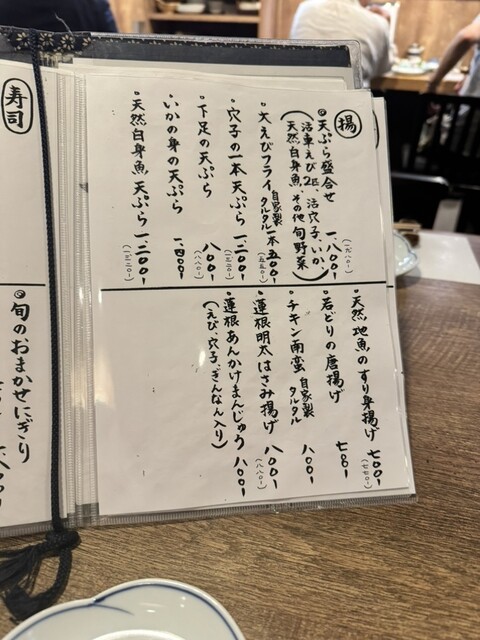 揚
◎天ぷら盛合せ 一、八〇〇、
(一九八〇、)
(活車えび2匹、活穴子、いか、
天然白身魚、その他 旬野菜)
・大えびフライ 自家製タルタル 一本 五〇〇、
(五五〇、)
・穴子の一本天ぷら 一二〇〇、
(一三二〇、)
・下足の天ぷら 八〇〇、
(八八〇、)
・いかの身の天ぷら 一、四〇〇、
・天然白身魚 天ぷら 一二〇〇、
(一三二〇、)
・天然地魚のすり身揚げ 七〇〇、
(七七〇、)
・若どりの唐揚げ 七〇〇、
・チキン南蛮 自家製タルタル 八〇〇、
・蓮根明太はさみ揚げ 八〇〇、
(八八〇、)
・蓮根あんかけまんじゅう 八〇〇、
(えび、穴子、ぎんなん入り)
寿司
◎旬のおまかせにぎり